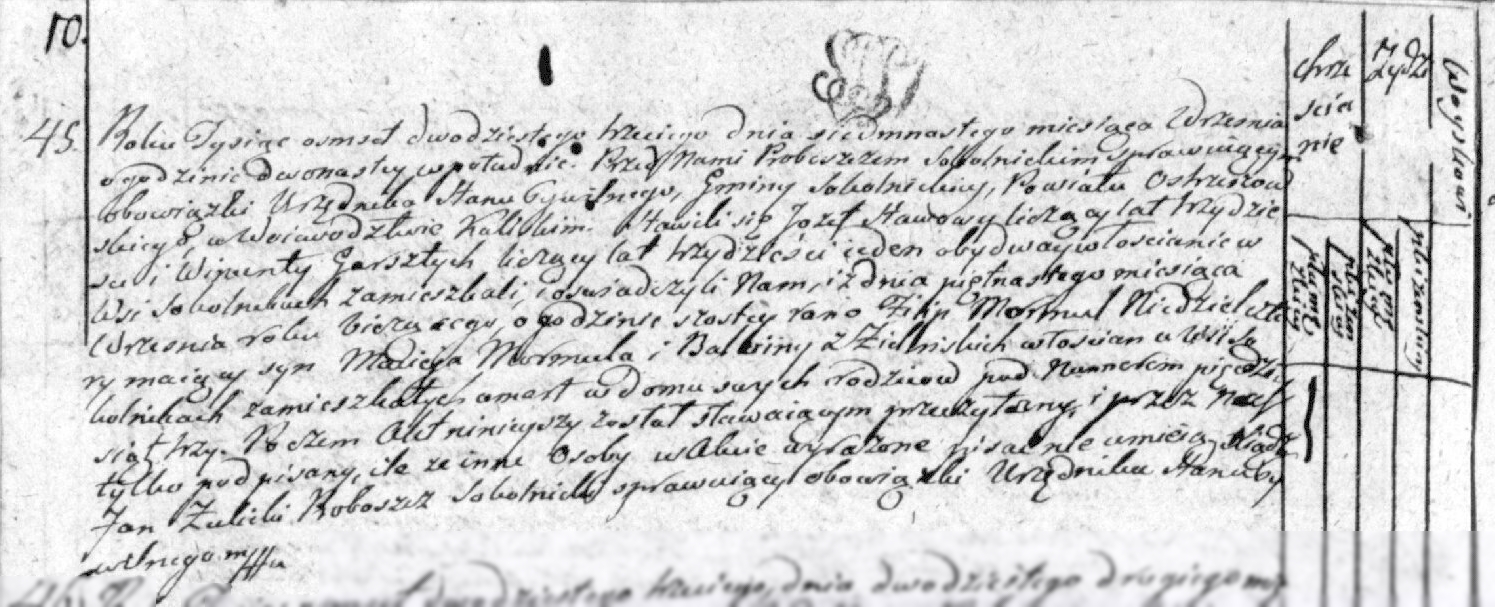 10.
45. Roku Tysiąc osmset dwudziestego trzeciego dnia siedmnastego miesiąca Wrzesnia
o godzinie dwonastey w południe. Przed Nami Proboszczem Sokolnickim sprawuiącym
obowiązki Urzędnika Stanu Cywilnego, Gminy Sokolnickiey, Powiatu Ostrzeszow
skiego, w Woiewodztwie Kaliskim. Stawili się Jozef Stawowy liczący lat trzydzie
sci i Wincenty Gorsztych liczący lat trzydzieści ieden obydway włościanie w
Wsi Sokolnikach zamieszkali, i oswiadczyli Nam, iż dnia piętnastego miesiąca
Wrzesnia roku bieżącego, o godzinie szostey rano Filip Mormul Niedziel czte
ry maiący syn Macieja Mormula i Balbiny z Zielinskich włościan w Wsi So
kolnikach zamieszkałych umarł w domu swych rodzicow pod Numerem pięćdzie
siąt trzy. Poczem Akt ninieyszy został stawaiącym przeczytany, i przez Nas
tylko podpisany, ile ze inne Osoby w Akcie wyrażone pisać nie umieią. Xiądz
Jan Żulicki Proboszcz Sokolnicki sprawuiący obowiązki Urzędnika Stanu Cy
wilnego mppa
chrze
scia
nie
Żydzi
Woyskowi